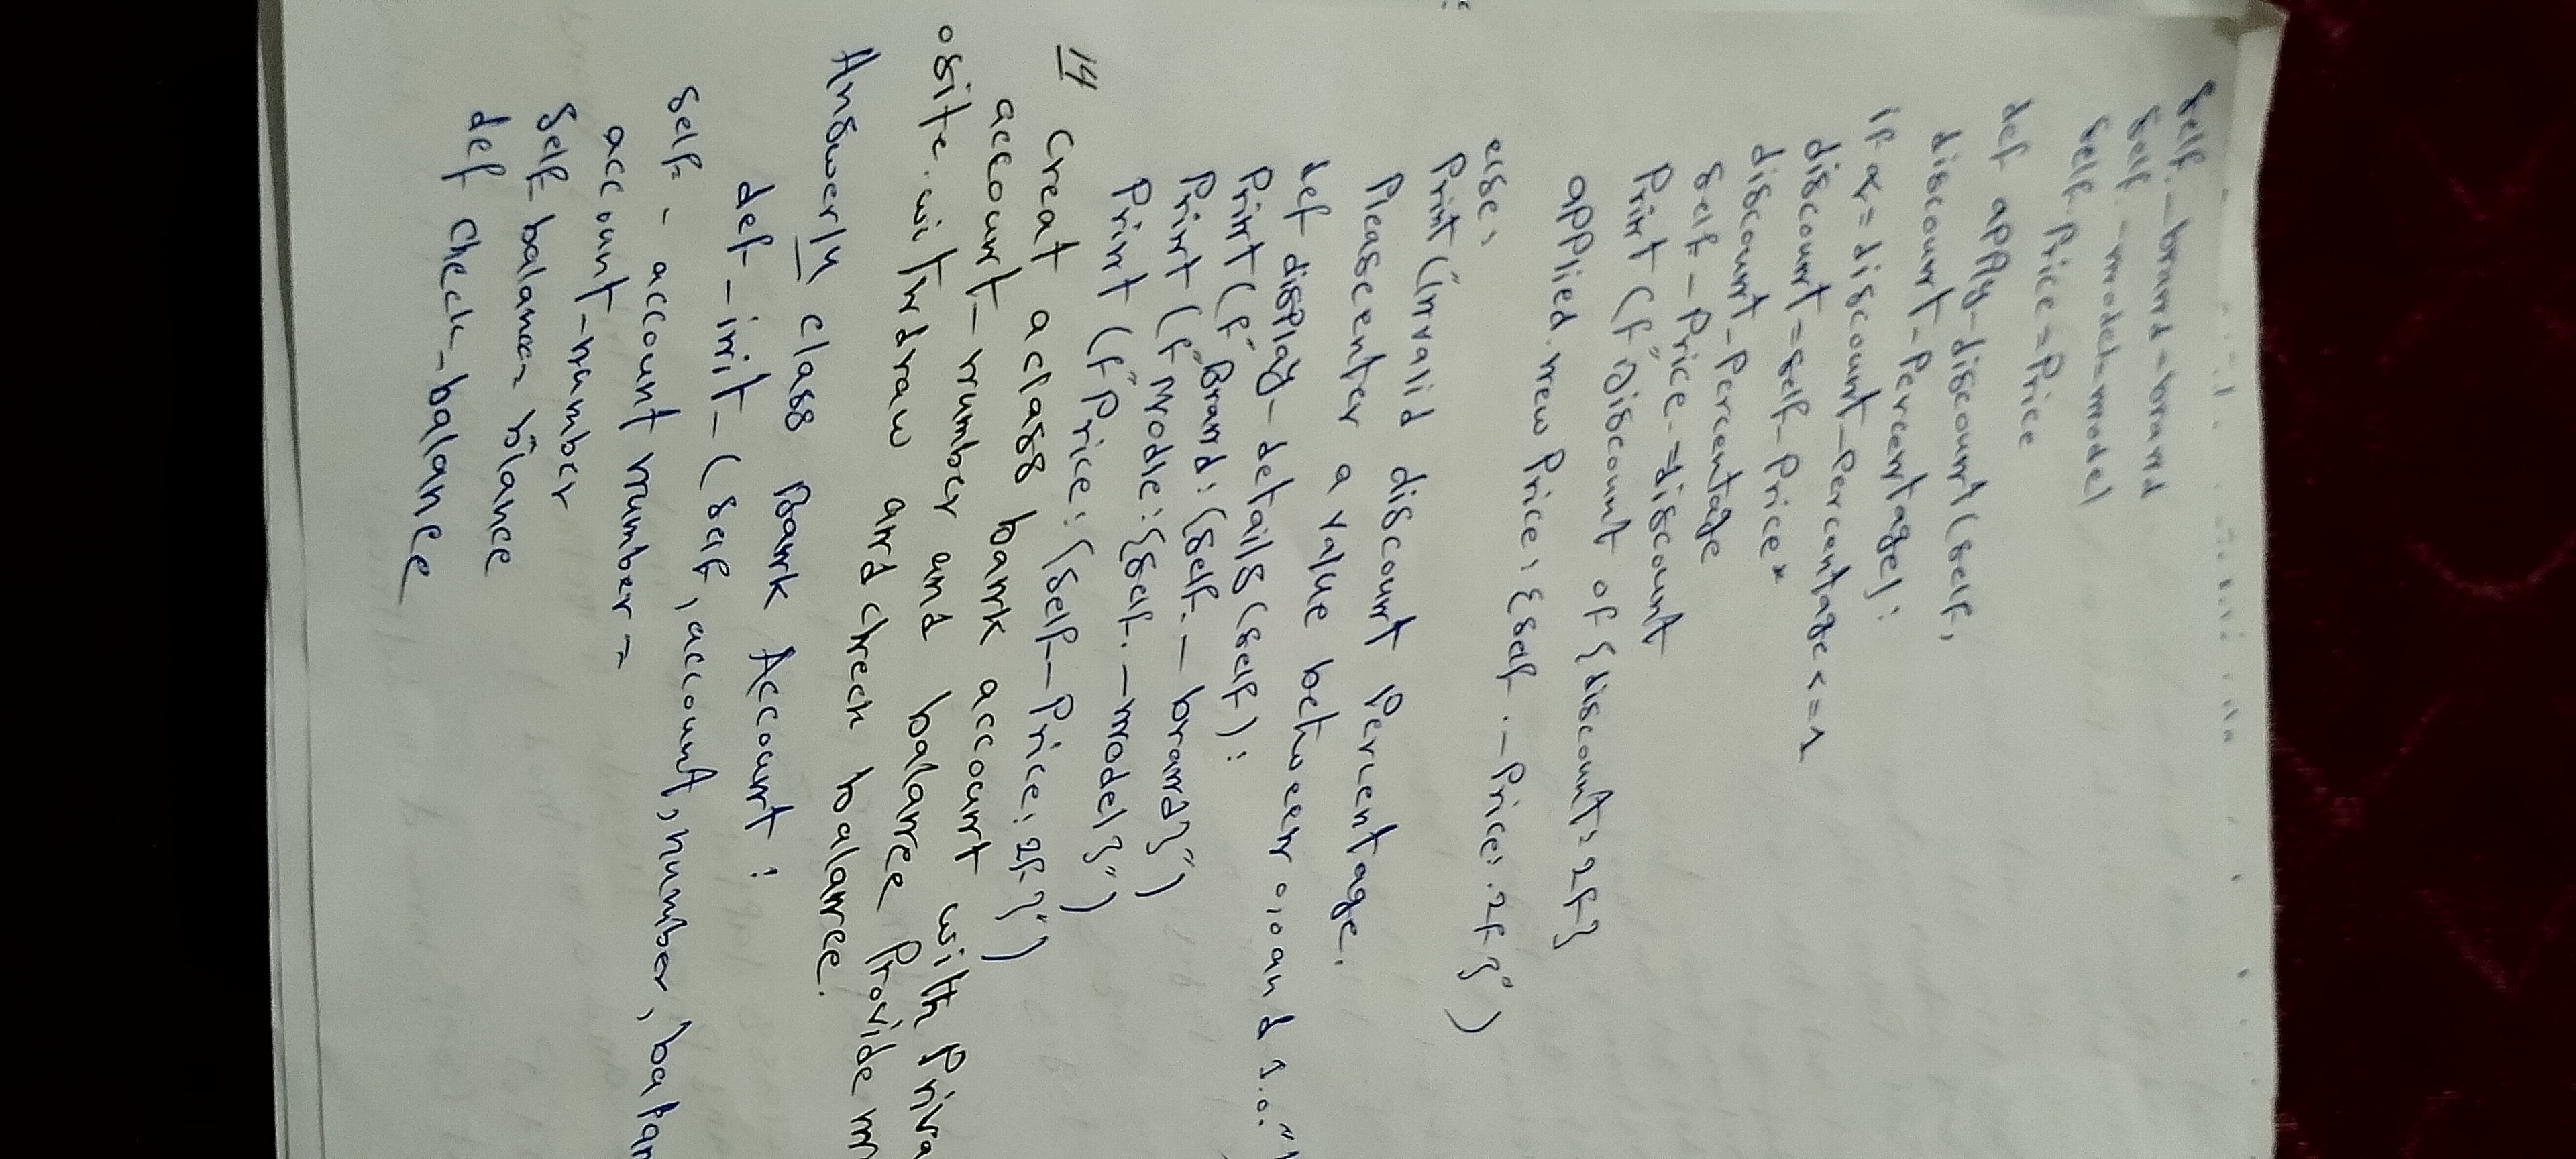 self._brand=brand
self._model=model
self.price=price
def apply-discount(self,
discount-percentage):
if o<=discount-percantage<=1
discount=self-price*
discount-percentage
self-price-=discount
print(f"Discount of {discount:2f}
applied.new price:{self._price:.2f}")
else:
print("Invalid discount percentage.
Please enter a value between 0.10 and 1.0."
def display-details(self):
print(f"Brand:{self._brand}")
print(f"Modle:{self._model}")
print(f"price:{self-price:2f}")
14 creat a class bank account with priva
account-number and balance provide m
osite.withdraw and check balance.
Answer14 class Bank Account:
def-init-(self,account,number,balan
self-account number=
account-number
self-balance=balance
def check-balance